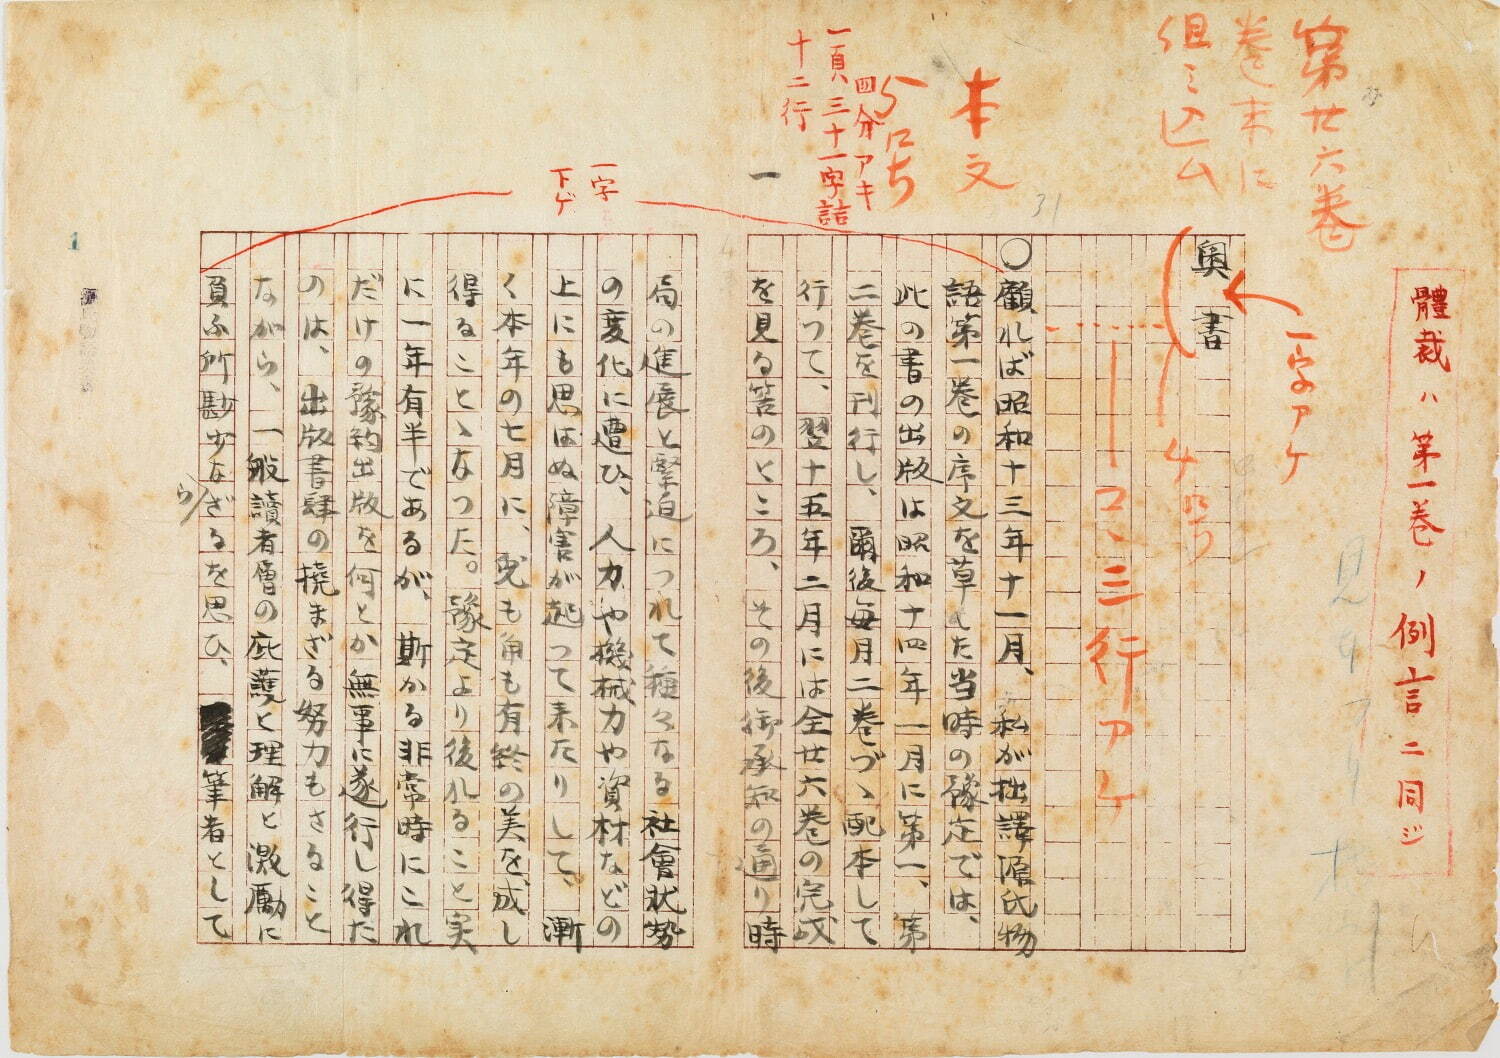 第廿六巻
巻末に
組ミ込ム
本文
四分アキ
一頁、三十一字詰
十二行
一
一字
下ゲ
31
體裁ハ第一巻ノ例言ニ同ジ
一字アケ
4号
コヽ三行アケ
奥書
〇顧れば昭和十三年十一月、私が拙譯源氏物
語第一巻の序文を草した当時の豫定では、
此の書の出版は昭和十四年一月に第一、第
二巻を刊行し、爾後毎月二巻づゝ配本して
行つて、翌十五年二月には全廿六巻の完成
を見る筈のところ、その後御承知の通り時
局の進展と緊迫につれて種々なる社會状勢
の変化に遭ひ、人力や機械力や資材などの
上にも思はぬ障害が起つて来たりして、漸
く本年の七月に、兎も角も有終の美を成し
得ることゝなつた。豫定より後れること実
に一年有半であるが、斯かる非常時にこれ
だけの豫約出版を何とか無事に遂行し得た
のは、出版書肆の撓まざる努力もさること
ながら、一般讀者層の庇護と理解と激勵に
負ふ所尠少ならざるを思ひ、筆者として
1